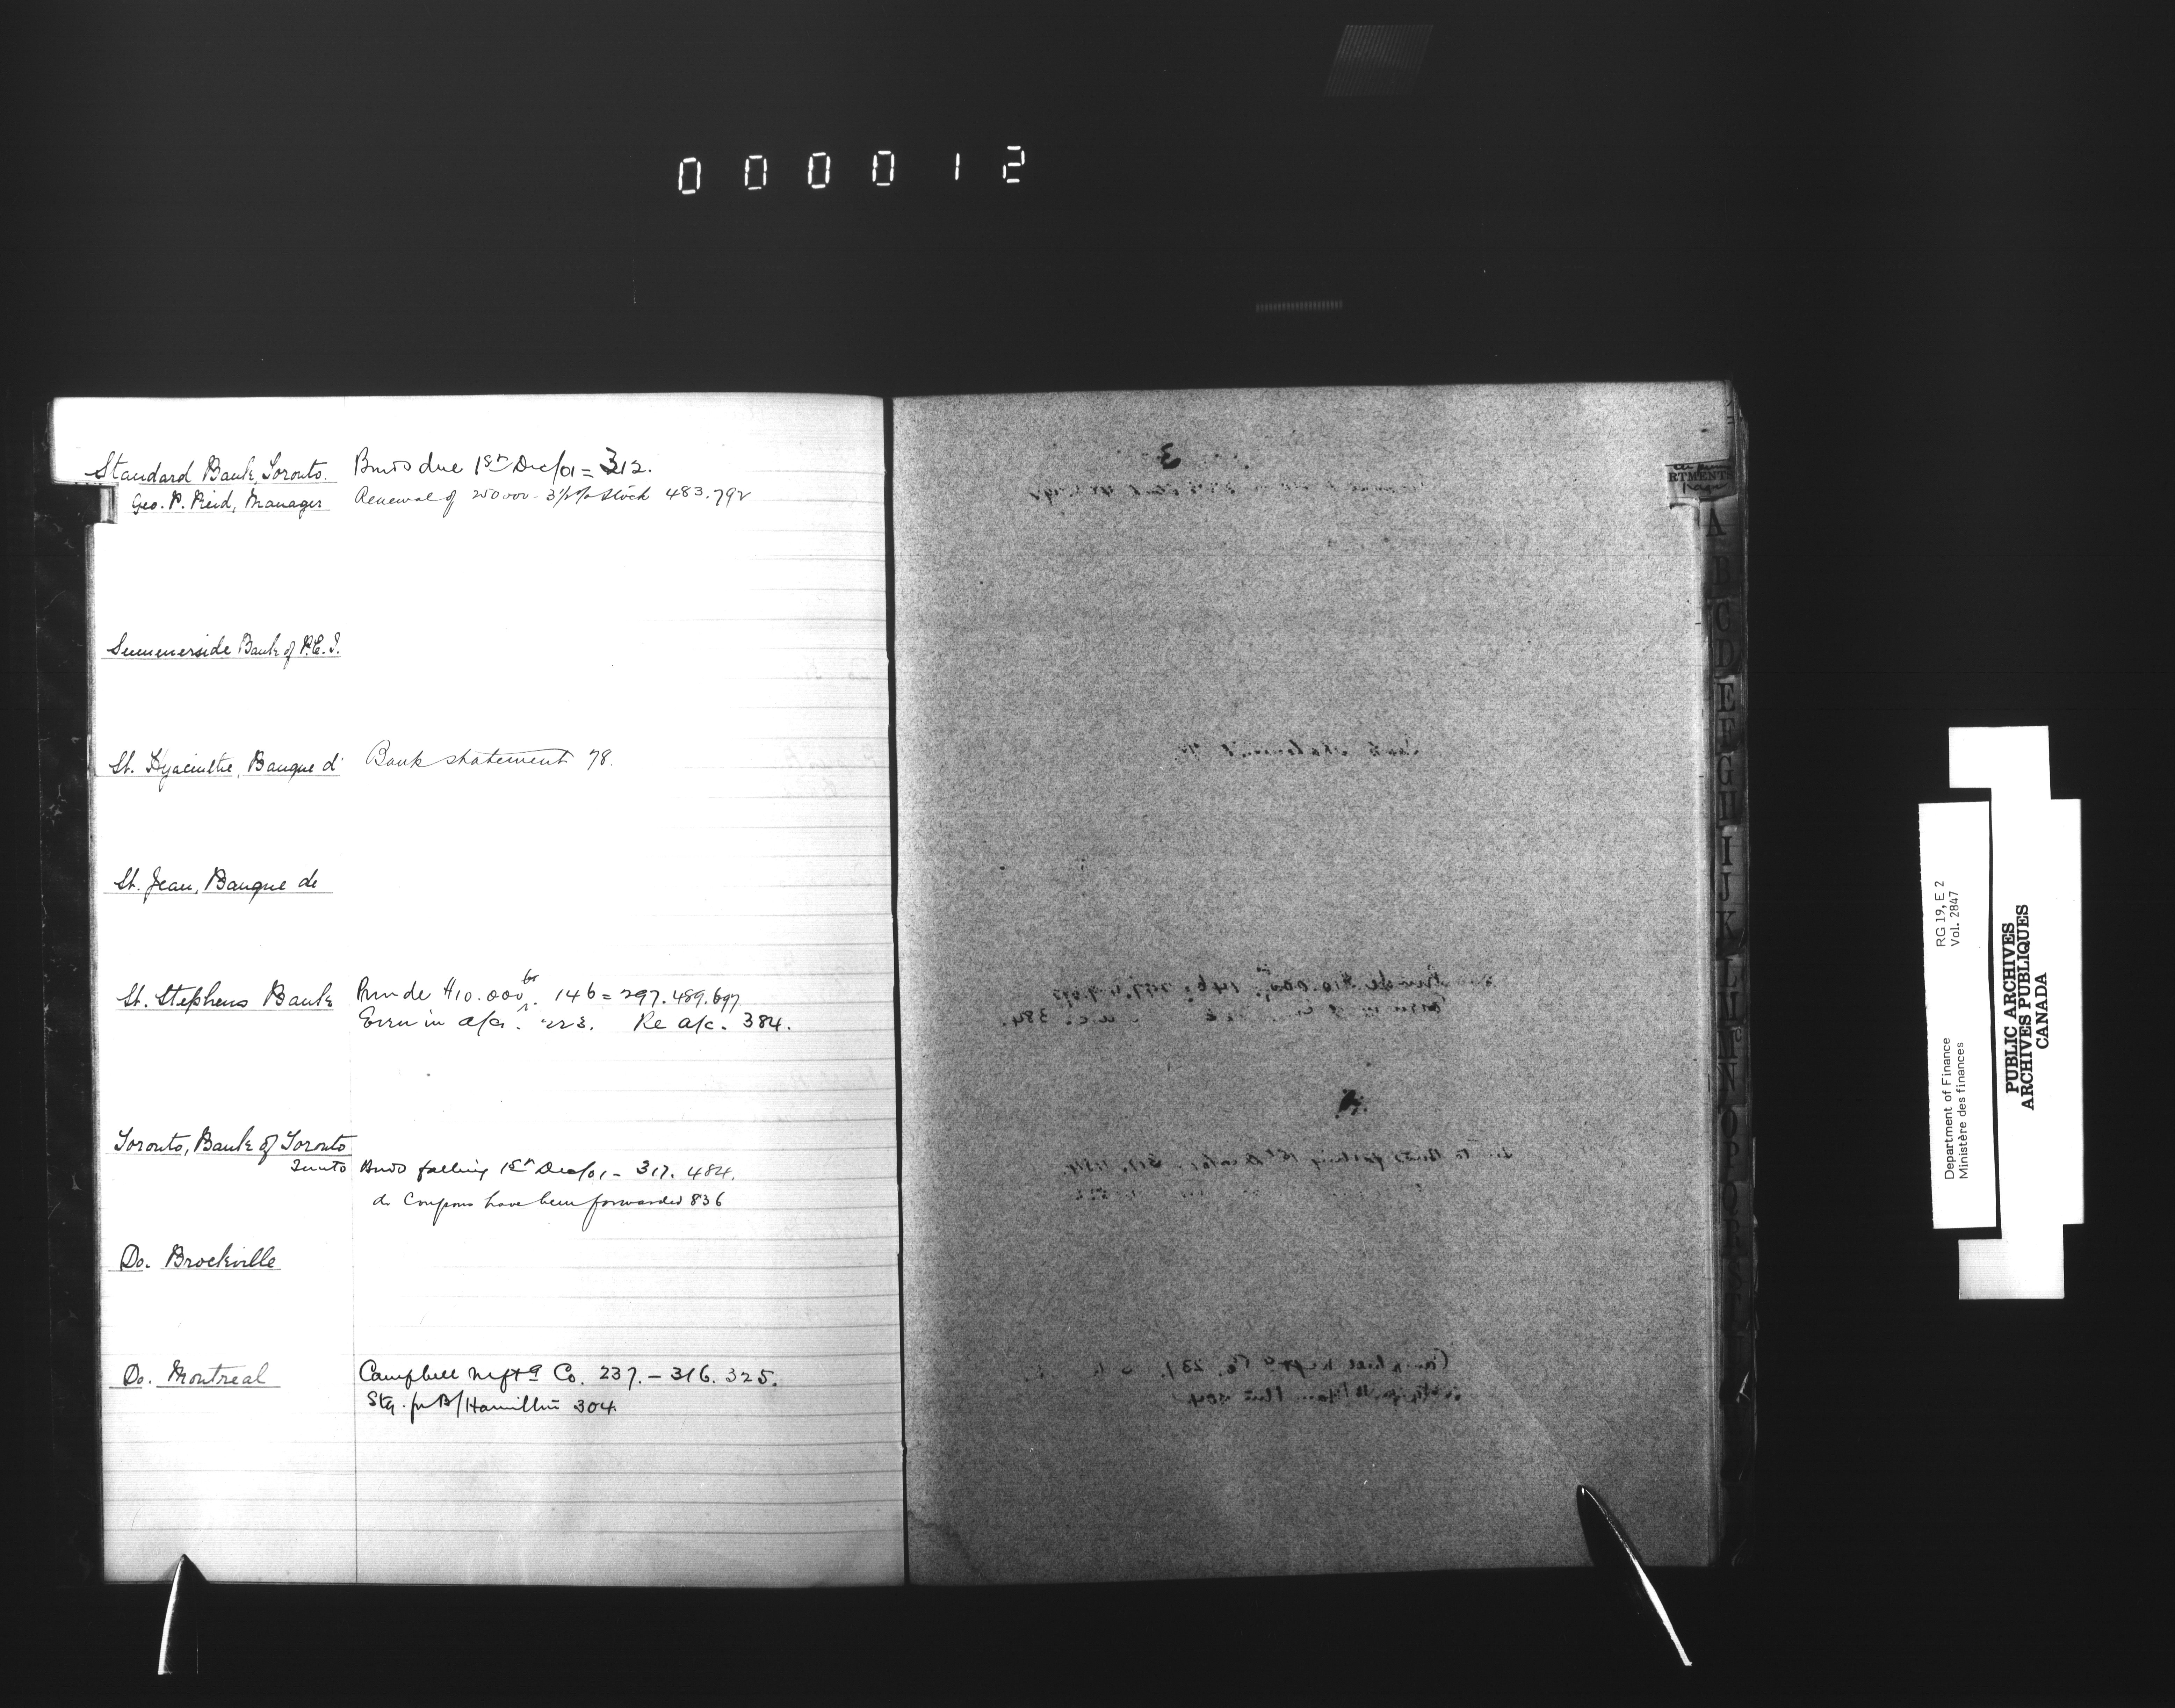 000012
Standard Bank, Toronto. Bnds due 1st Dec/01 = 312.
Geo. P. Reid, Manager Renewal of 250000 - 3½% Stock 483.792
Summerside Bank of P.E.I.
St. Hyacinthe, Banque d' Bank statement 78.
St. Jean, Banque de
St. Stephens Bank $10.000 146 = 297.489.697
Error in a/cs. 223. Re a/c. 384.
Toronto, Bank of Toronto
Toronto Bnds falling 1st Dec/01 - 317. 484.
do Coupons have been forwarded 836
Do. Brockville
Do. Montreal Campbell Mftg Co. 237. - 316. 325.
Stg. for B/Hamilton 304
RTMENTS
A
B
C
D
E
F
G
H
I
J
K
L
M
N
O
P
Q
R
S
RG 19, E 2
Vol. 2847
Department of Finance
Ministère des finances
PUBLIC ARCHIVES
ARCHIVES PUBLIQUES
CANADA